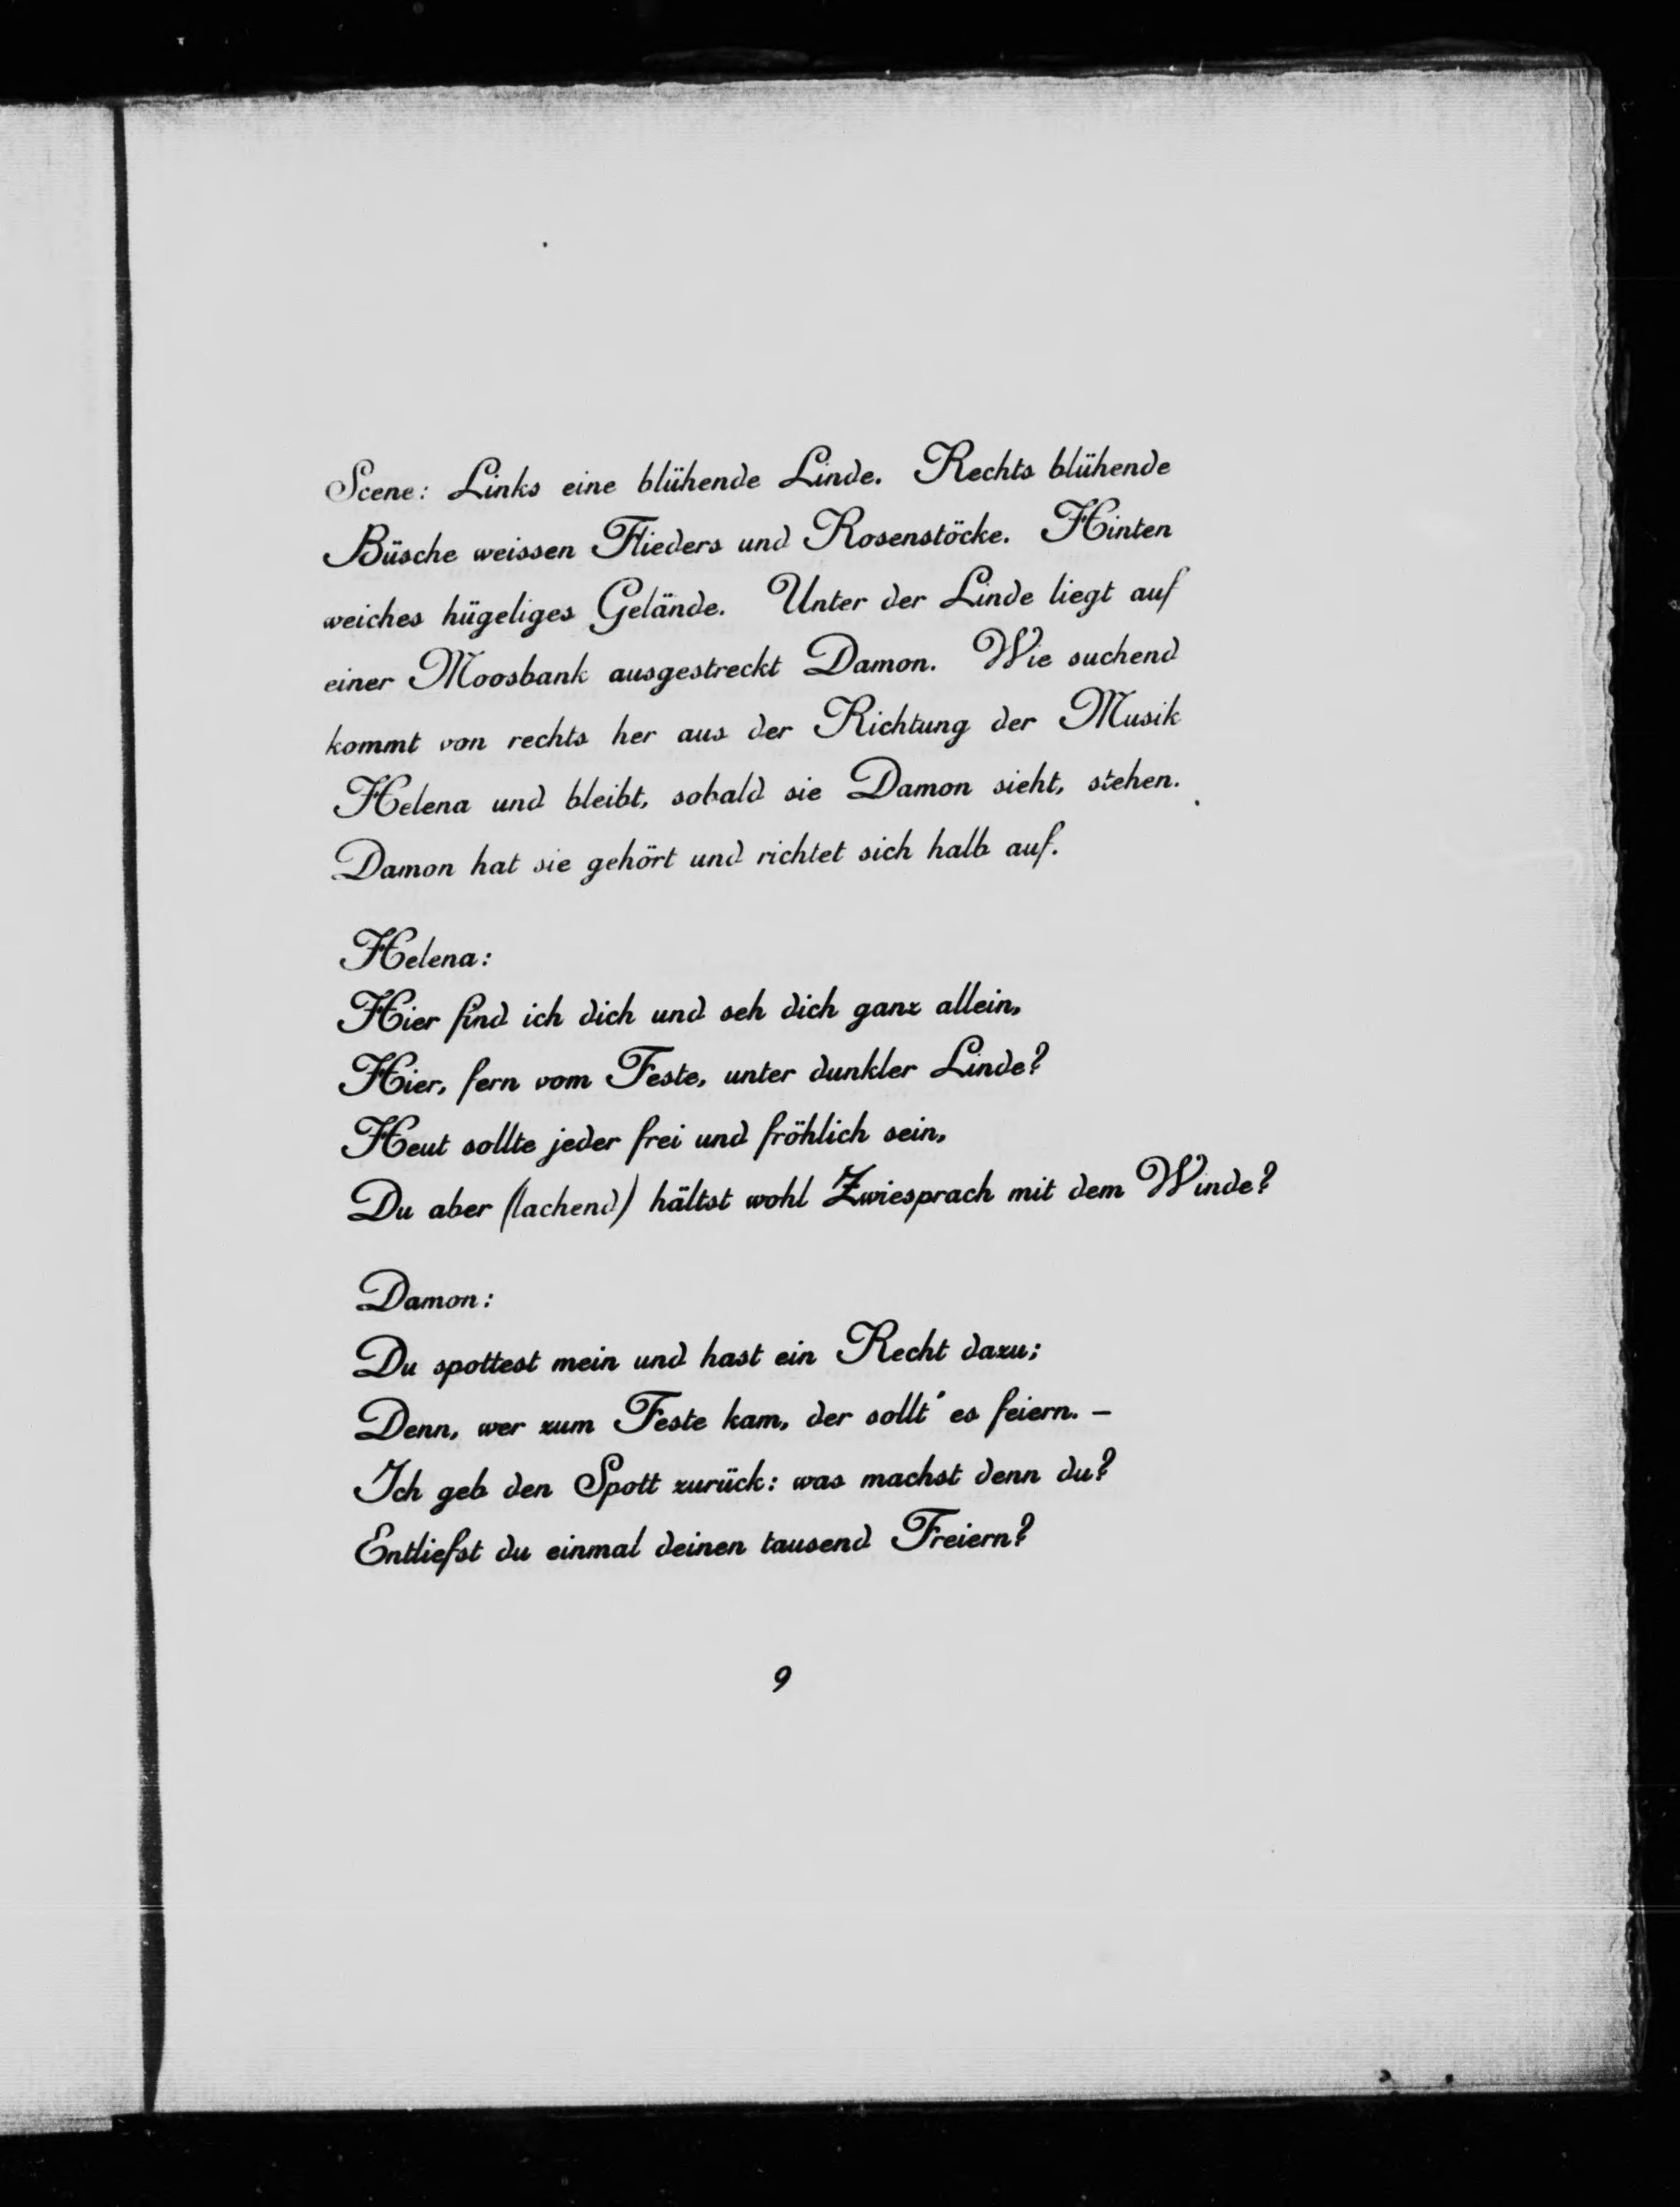 Scene: Links eine blühende Linde. Rechts blühende
Büsche weissen Flieders und Rosenstöcke. Hinten
weiches hügeliges Gelände. Unter der Linde liegt auf
einer Moosbank ausgestreckt Damon. Wie suchend
kommt von rechts her aus der Richtung der Musik
Helena und bleibt, sobald sie Damon sieht, stehen.
Damon hat sie gehört und richtet sich halb auf.
Helena:
Hier find ich dich und seh dich ganz allein,
Hier, fern vom Feste, unter dunkler Linde?
Heut sollte jeder frei und fröhlich sein,
Du aber (lachend) hältst wohl Zwiesprach mit dem Winde?
Damon:
Du spottest mein und hast ein Recht dazu;
Denn, wer zum Feste kam, der sollt' es feiern. –
Ich geb den Spott zurück: was machst denn du?
Entliefst du einmal deinen tausend Freiern?
9